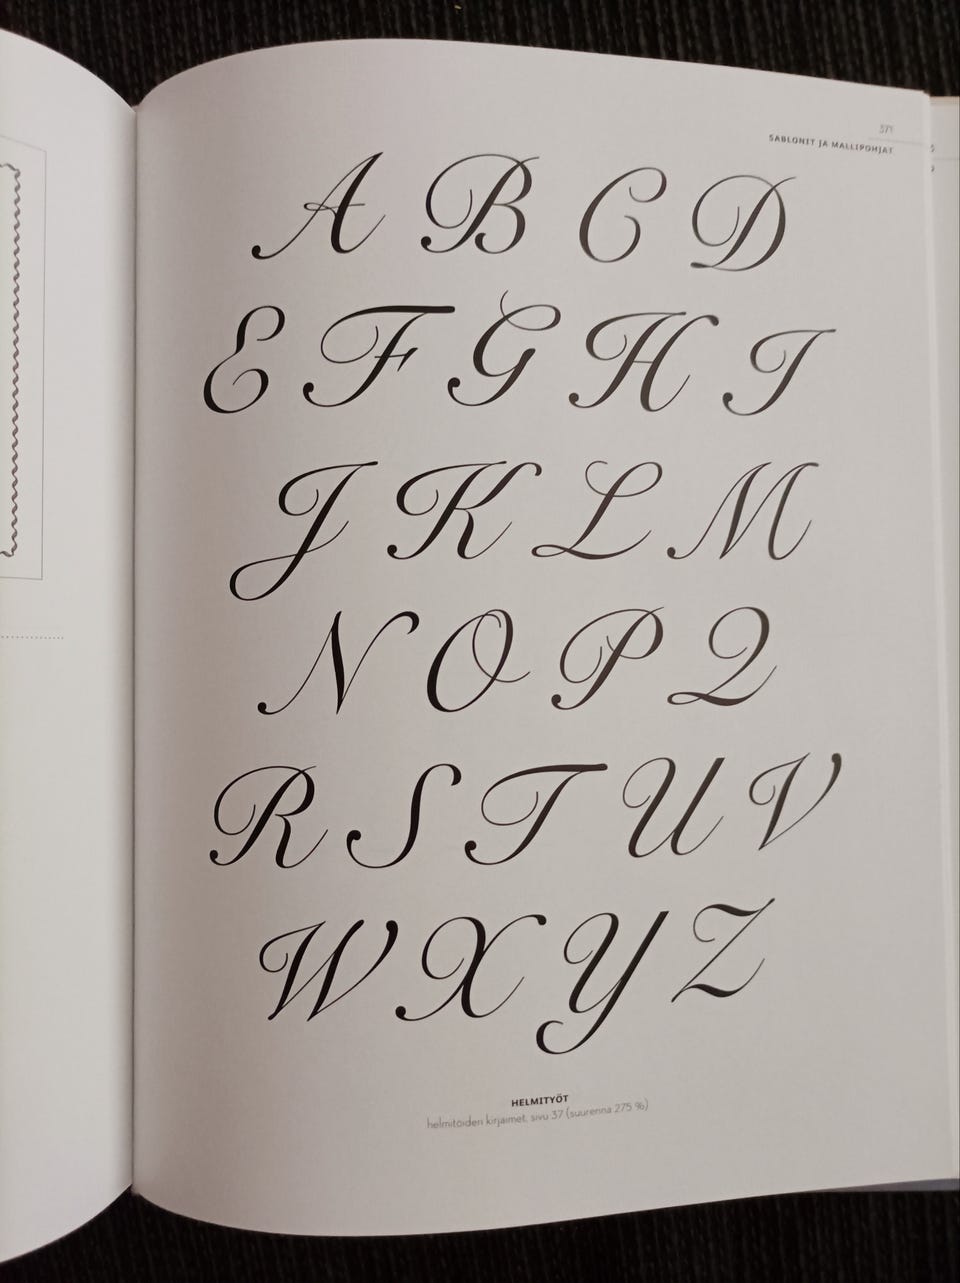 371
SABLONIT JA MALLIPOHJAT
A B C D
E F G H I
J K L M
N O P Q
R S T U V
W X Y Z
HELMITYÖT
helmitöiden kirjaimet, sivu 37 (suurenna 275 %)